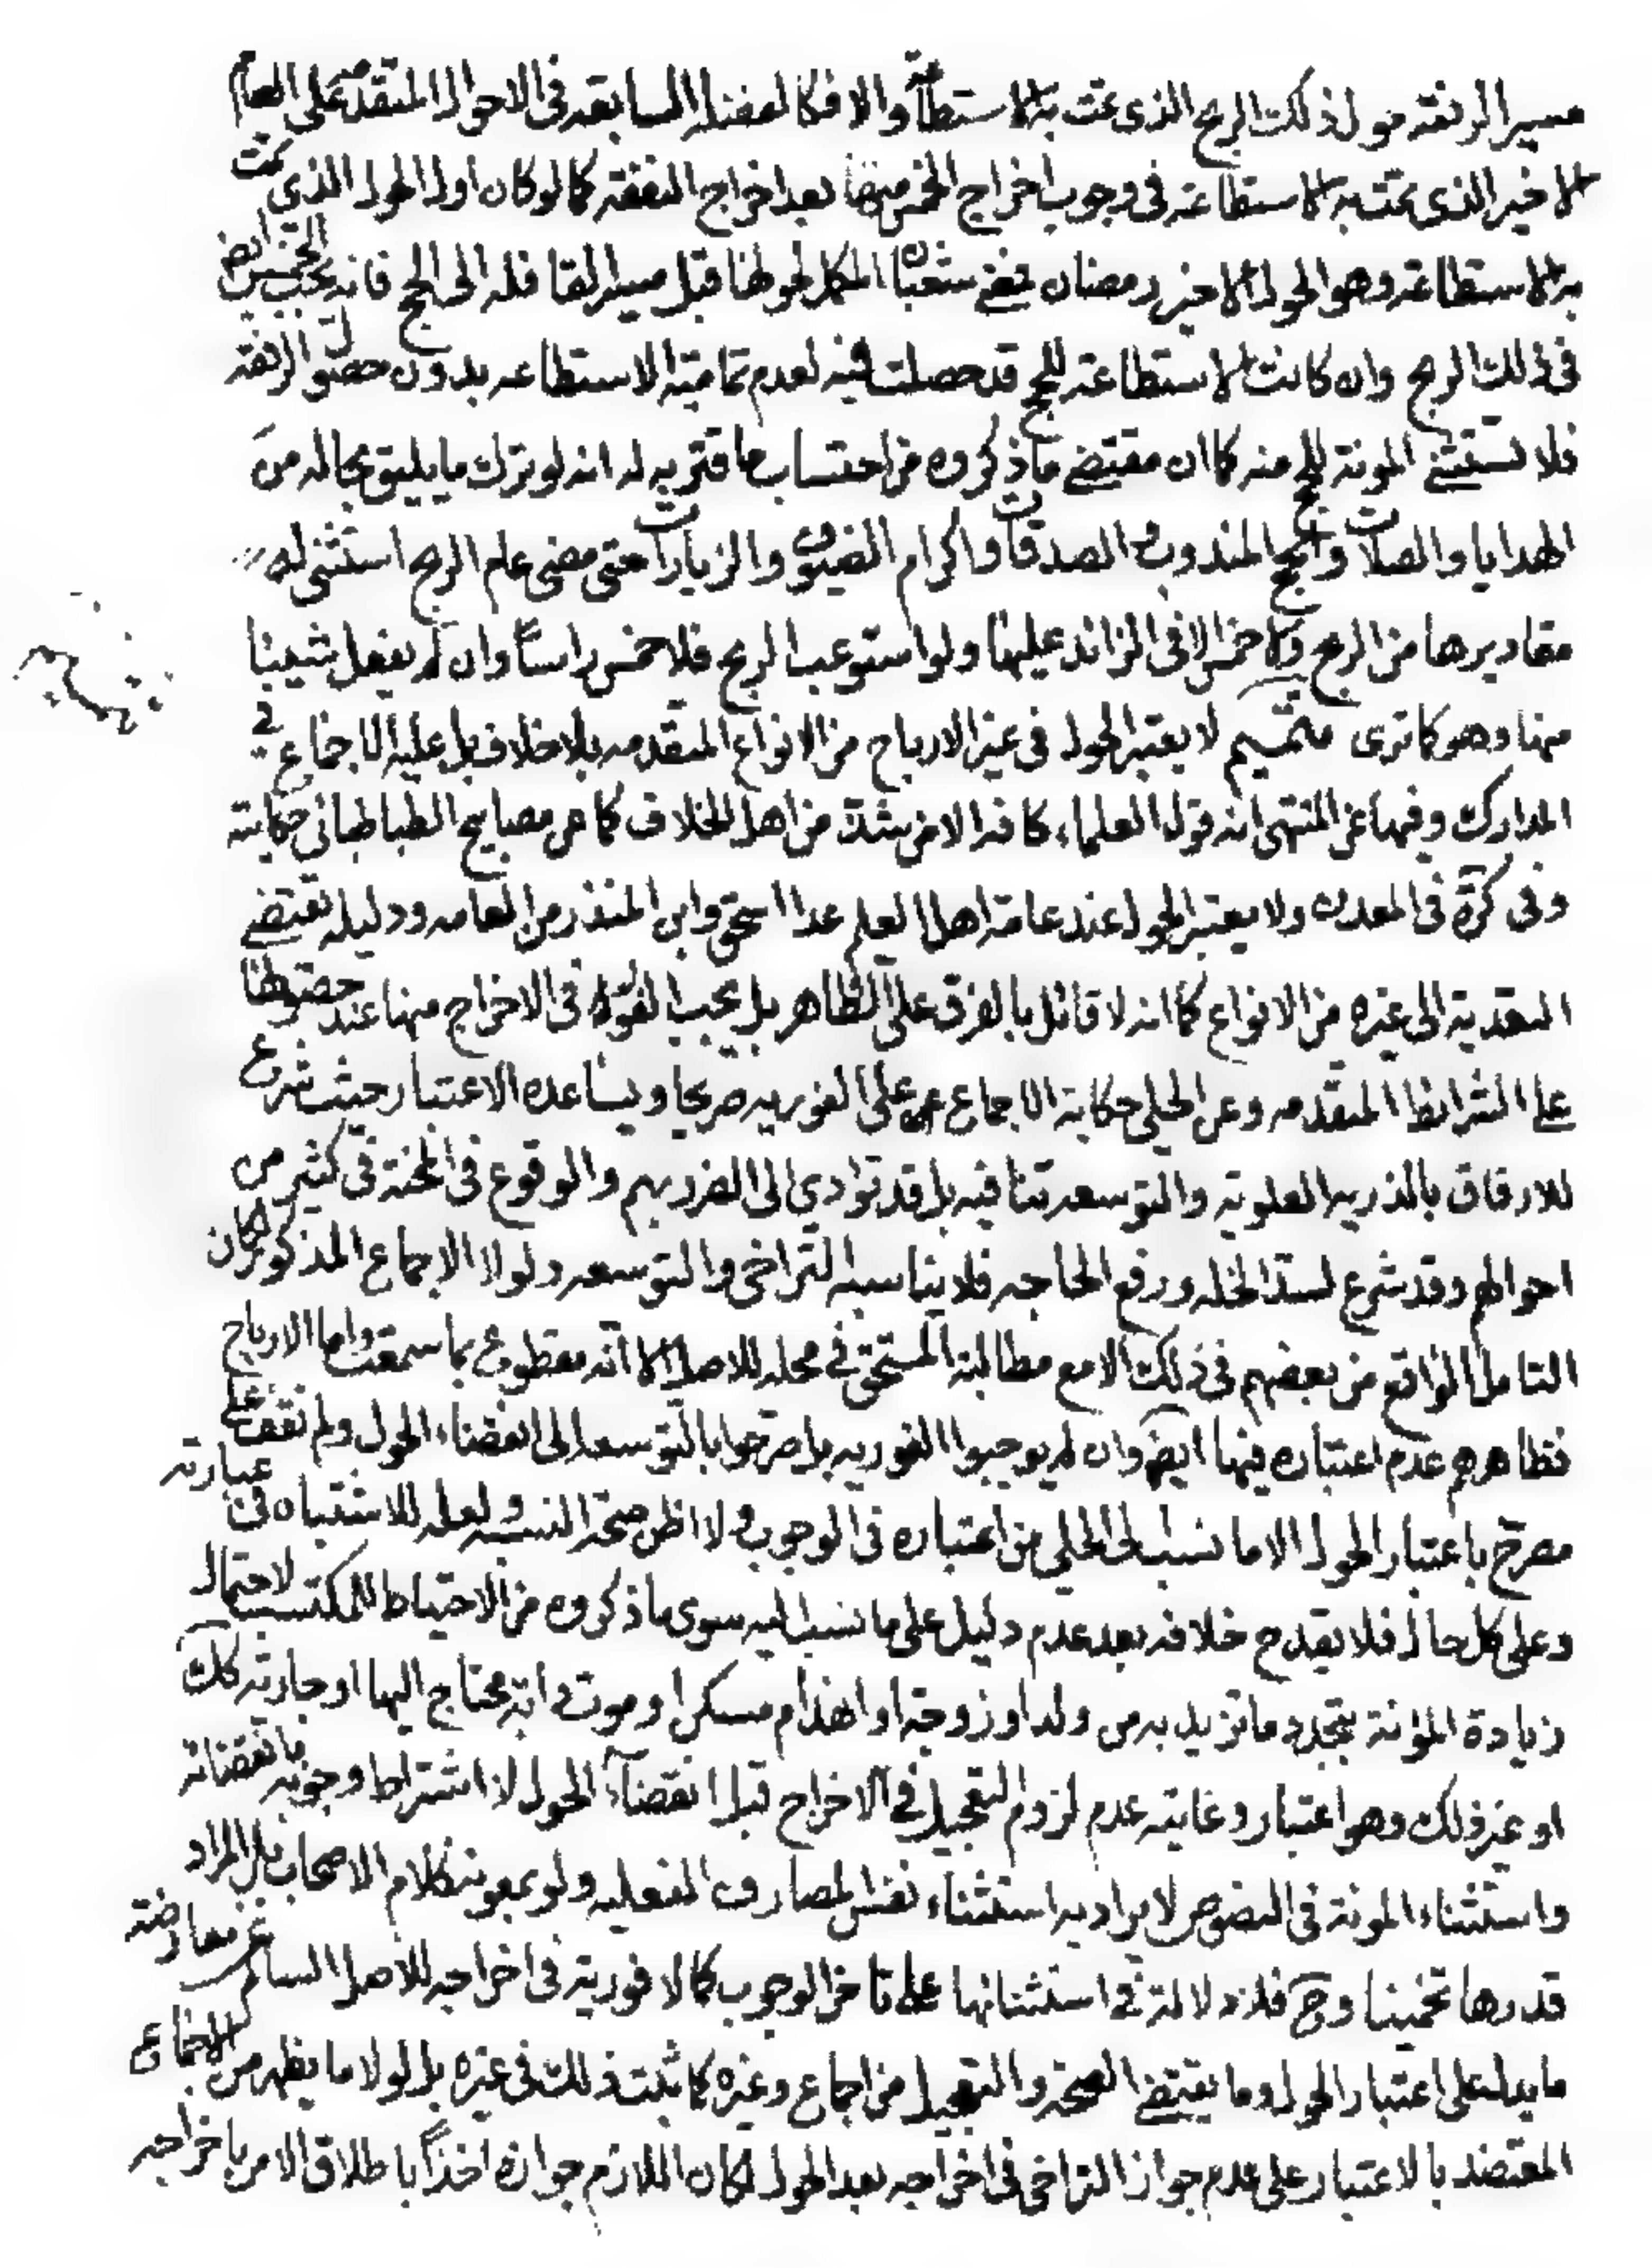 مسير الرفقه حول ذلك الربح الذى تمت به الاستطاعة والا فكالفضلة السابقه فى الاحوال المتقدمة على العام
الاخير الذى تمت به الاستطاعة فى وجوب اخراج الخمس منها بعد اخراج النفقه كما لو كان اول الحول الذى تمت
به الاستطاعة وهو الحول الاخير رمضان فمضى شعبان المكمل لحولها قبل مسير القافله الى الحج فانه يجب الخمس ايض
فى ذلك الربح وان كانت الاستطاعة للحج قد حصلت فيه لعدم تمامية الاستطاعه بدون حصول الرفقه
فلا تستثنى المونة للحج منه كما ان مقتضى ما ذكروه من احتساب ما قتر به له انه لو ترك ما يليق بحاله من
الهدايا والصلات والحج المندوب والصدقات واكرام الضيوف والزيارات حتى مضى عام الربح استثنى له
مقاديرها من الربح ولا خمس الا فى الزائد عليها ولو استوعب الربح فلا خمس راسا وان لم يفعل شيئا
منها وهو كما ترى تتميم لا يعتبر الحول فى غير الارباح من الانواع المتقدمه بلا خلاف بل عليه الاجماع فى
المدارك وفيها عن المنتهى انه قول العلماء كافه الا من شذ من اهل الخلاف كما عن مصابيح الطباطبائى حكايته
وفى كرة فى المعدن ولا يعتبر الحول عند عامة اهل العلم عدا اسحق وابن المنذر من العامه ودليله يقتضى
التعدية الى غيره من الانواع كما انه لا قائل بالفرق على الظاهر بل يجب الفور فى الاخراج منها عند حصولها
على الشرائط المتقدمه وعن الحلى حكاية الاجماع على الفوريه صريحا ويساعده الاعتبار حيث شرع
للارفاق بالذريه العلويه والتوسعه تنافيه بل قد تؤدي الى الضرر بهم والوقوع فى المحنة فى كثير من
احوالهم وقد شرع لسد الخله ورفع الحاجه فلا يناسبه التراخى والتوسعه ولولا الاجماع المذكور لكان
التامل الواقع من بعضهم فى ذلك الا مع مطالبة المستحق فى محله للاصل الا انه مقطوع بما سمعت واما الارباح
فظاهرهم عدم اعتباره فيها ايضا وان لم يوجبوا الفوريه بل صرحوا بالتوسعه الى انقضاء الحول ولم نقف على
مصرح باعتبار الحول الا ما نسب الى الحلى من اعتباره فى الوجوب ولا اظن صحة النسبه ولعله للاشتباه فى عبارته
وعلى كل حال فلا يقدح خلافه بعد عدم دليل على ما نسب اليه سوى ما ذكروه من الاحتياط للمكتسب لاحتمال
زيادة المؤنة بتجدد ما تزيد به من ولد او زوجة او انهدام مسكن او موت دابة محتاج اليها او جارية كك
او غير ذلك وهو اعتبار وغايته عدم لزوم التعجيل فى الاخراج قبل انقضاء الحول لا اشتراط وجوبه بانقضائه
واستثناء المونة فى النصوص لا يراد به استثناء نفس المصارف الفعليه ولو بمعونة كلام الاصحاب بل المراد
قدرها تخمينا وح فلا دلالة فى استثنائها على تاخر الوجوب كما لا فورية فى اخراجه للاصل السالم عن معارضة
ما يدل على اعتبار الحول وما يقتضى الصحة والتعجيل من اجماع وغيره كما ثبت ذلك فى غيره بل لولا ما يظهر من الاجماع
المعتضد بالاعتبار على عدم جواز التراخى فى اخراجه بعد الحول لكان اللازم جوازه اخذا باطلاق الامر باخراجه